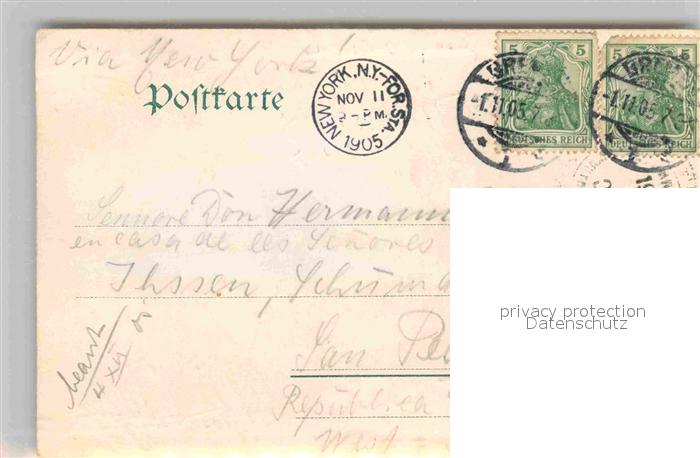 Via New York!
Postkarte
NEW YORK, N.Y.-FOR. STA.
NOV 11
1905
5
5
DEUTSCHES REICH
DEUTSCHES REICH
1.11.05
1.11.05
Sennore Don Hermann
en casa de los Señores
Ihssen,
San Pe
Republica
West-
beant
4 XII 05
privacy protection
Datenschutz